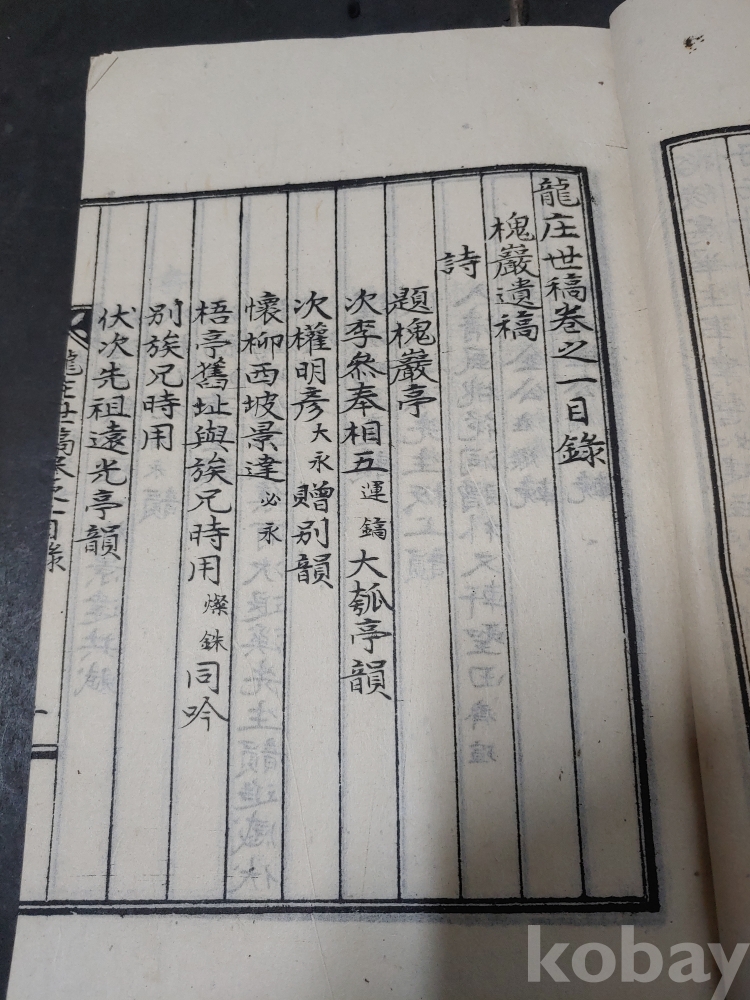 龍庄世稿卷之一目錄
槐巖遺稿
詩
題槐巖亭
次李叅奉相五運鎬大瓠亭韻
次權明彥大永贈別韻
懷柳西坡景達必永
梧亭舊址與族兄時用燦銖同吟
別族兄時用
伏次先祖遠光亭韻
龍庄世稿卷之一目錄
一
kobay